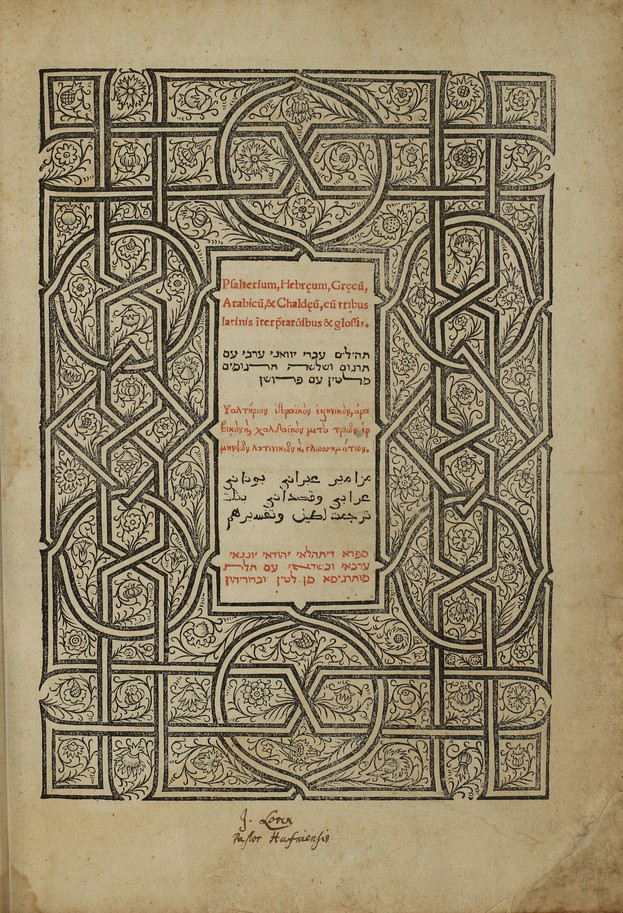 Psalterium, Hebręum, Gręcū,
Arabicū, & Chaldęū, cū tribus
latinis īterp̄tatōibus & glossis.
תהילים עברי יוואני ערבי עם
תרגום ושלשה תרגומים
מלטין עם פרושן
Ψαλτήριον ἑβραϊκὸν ἑλληνικὸν, ἀρα
βικὸν κ, χαλδαϊκὸν μετὰ τριῶν ἑρ
μηνειῶν λατινικῶν κ, γλωσσημάτων.
مزامير عبراني يوناني
عرابي وقصداني بثلث
ترجمت لطين وتفسيرهم
ספרא דיתהלאי יהודאי יונגאי
ערבאי וכשדאי עם תלת
מותרגימא מן לטין ובחריהון
J. Loren
Pastor Hafniensis